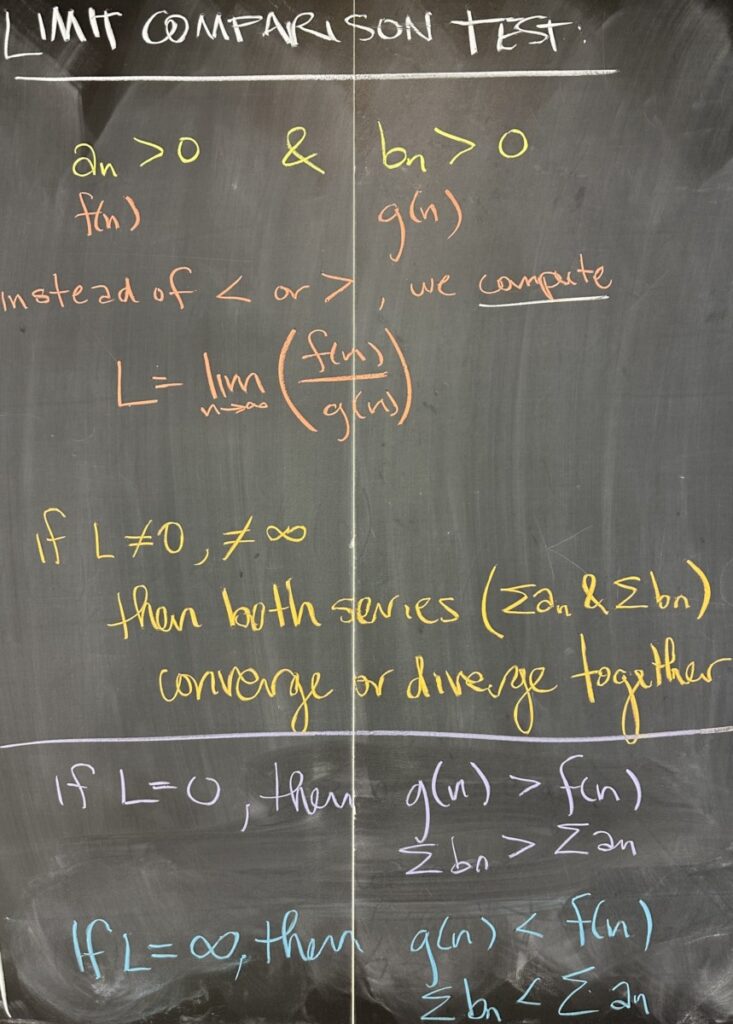 LIMIT COMPARISON TEST:
an > 0 & bn > 0
f(n) g(n)
instead of < or >, we compute
L = lim n→∞ (f(n)/g(n))
if L ≠ 0, ≠ ∞
then both series (Σan & Σbn)
converge or diverge together
If L = 0, then g(n) > f(n)
Σbn > Σan
If L = ∞, then g(n) < f(n)
Σbn < Σan